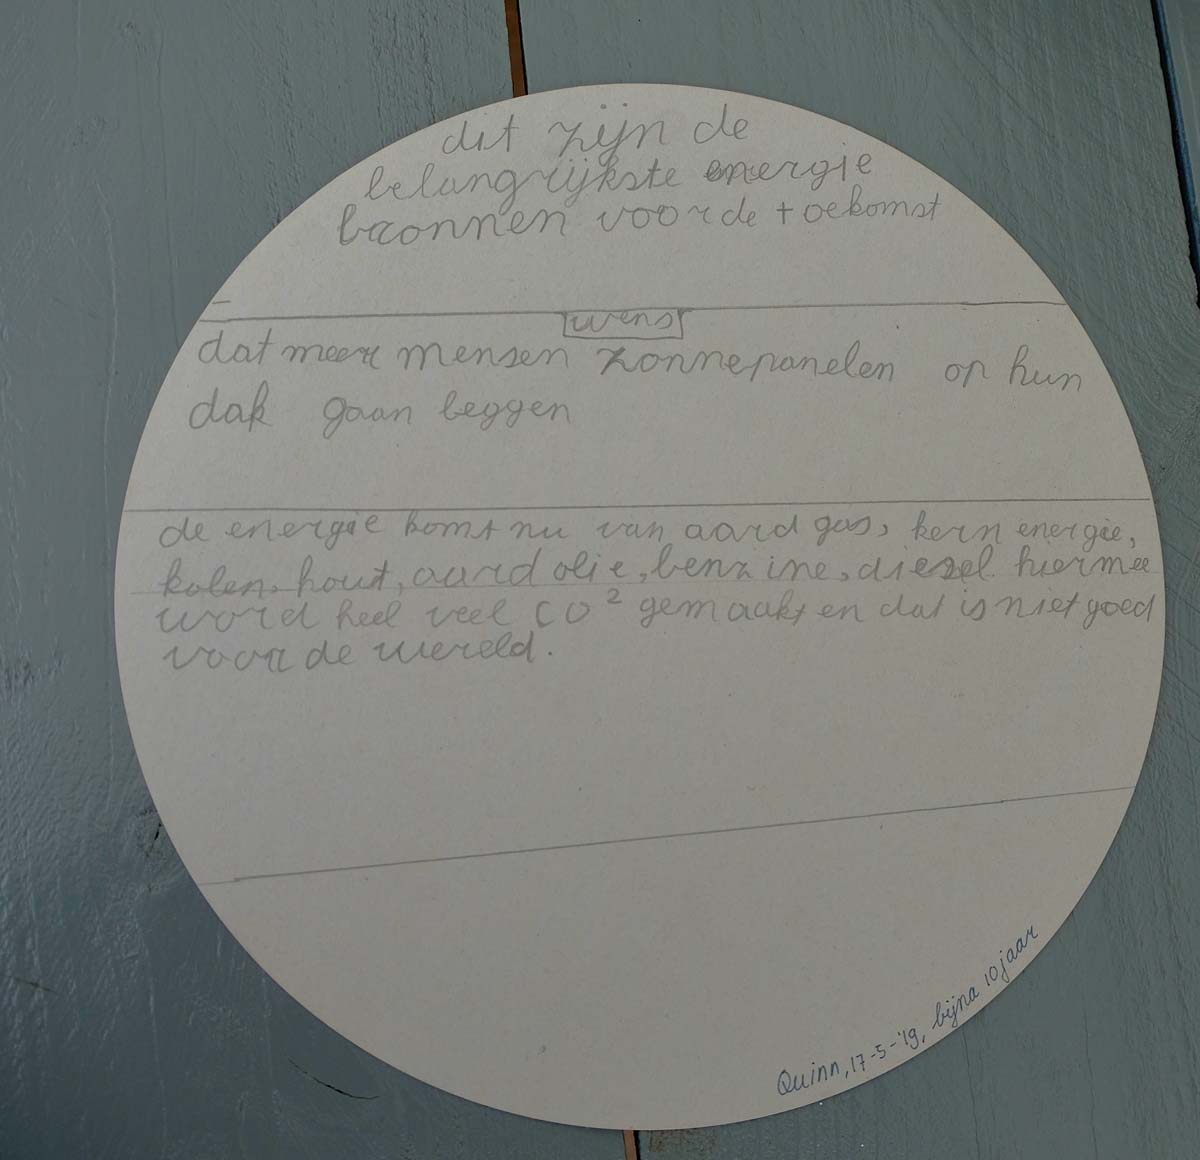 dit zijn de
belangrijkste energie
bronnen voor de toekomst
wens
dat meer mensen zonnepanelen op hun
dak gaan leggen
de energie komt nu van aard gas, kern energie,
kolen, hout, aard olie, benzine, diesel. hiermee
word heel veel CO² gemaakt en dat is niet goed
voor de wereld.
Quinn, 17-5-'19, bijna 10 jaar